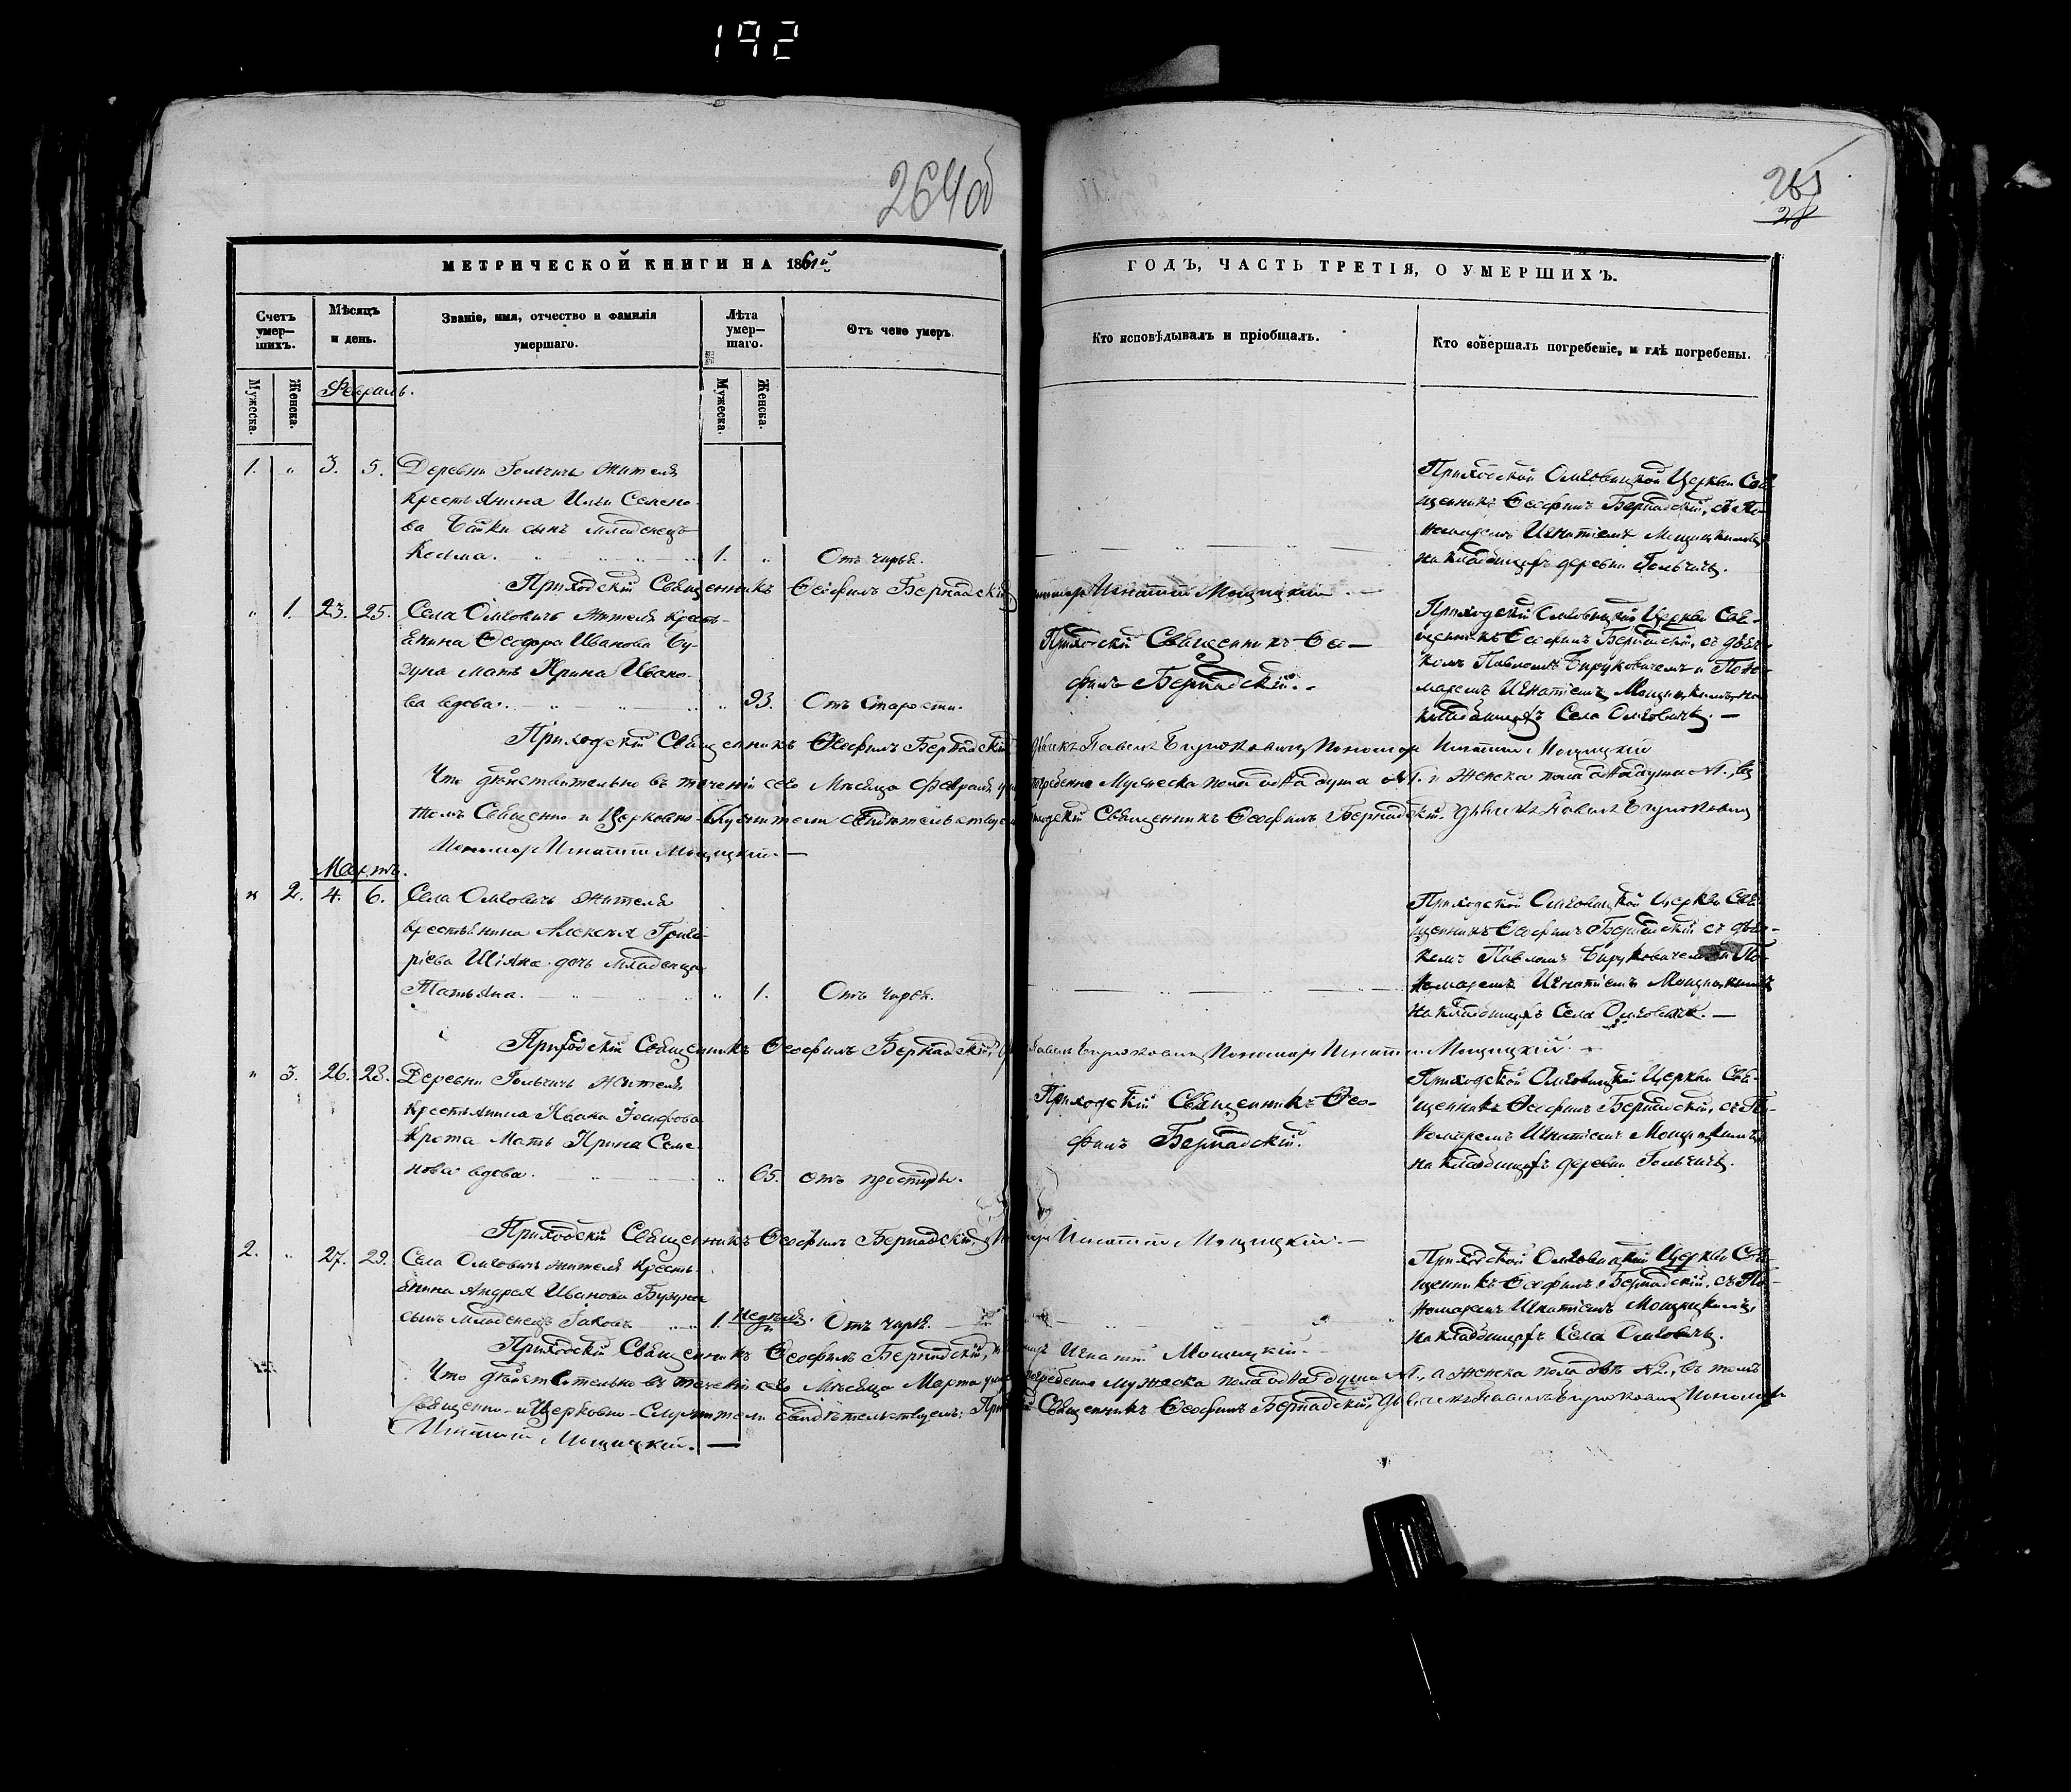 192
264об
265
28
МЕТРИЧЕСКОЙ КНИГИ НА 1861й
ГОДЪ, ЧАСТЬ ТРЕТІЯ, О УМЕРШИХЪ.
Счетъ умер-шихъ.
Мѣсяцъ и день.
Званіе, имя, отчество и фамилія умершаго.
Лѣта умер-шаго.
Отъ чего умеръ.
Кто исповѣдывалъ и пріобщалъ.
Кто совершалъ погребеніе, и гдѣ погребены.
Мужеска. Женска.
Мужеска. Женска.
Февраль.
1. " 3. 5. Деревни Гольчичъ жителя
крестьянина Ильи Семено-
ва Байки сынъ младенецъ
Косма. 1. " Отъ чирья.
Приходской Омговицкой Церкви Свя-
щенникъ Ѳеофилъ Бернадскій, съ По-
номаремъ Игнатіемъ Мощицкимъ
на кладбищѣ деревни Гольчичъ.
Приходскій Священникъ Ѳеофилъ Бернадскій, Пономарь Игнатій Мощицкій.
" 1. 23. 25. Села Омговичъ жителя кресть-
янина Ѳеодора Иванова Бу-
зуна мать Ирина Ивано-
ва вдова. " 93. Отъ Старости.
Приходскій Священникъ Ѳео-
филъ Бернадскій.
Приходской Омговицкой Церкви Свя-
щенникъ Ѳеофилъ Бернадскій, съ дьяч-
комъ Павломъ Бируковичемъ и Поно-
маремъ Игнатіемъ Мощицкимъ, на
кладбищѣ Села Омговичъ.
Приходскій Священникъ Ѳеофилъ Бернадскій, Дьячекъ Павелъ Бирюковичъ Пономарь Игнатій Мощицкій
Что дѣйствительно въ теченіи сего Мѣсяца Февраля погребено Мужеска пола одна душа №1. и Женска пола одна душа №1., въ
томъ Священно и Церковно-Служители свидѣтельствуемъ: Приходскій Священникъ Ѳеофилъ Бернадскій. Дьячекъ Павелъ Бирюковичъ
Пономарь Игнатій Мощицкій.
Мартъ.
" 2. 4. 6. Села Омговичъ жителя
крестьянина Алексея Григо-
ріева Шіяна дочь младенца
Татьяна. " 1. Отъ чирья.
Приходской Омговицкой Церкви Свя-
щенникъ Ѳеофилъ Бернадскій съ дьяч-
комъ Павломъ Бируковичемъ и По-
номаремъ Игнатіемъ Мощицкимъ
на кладбищѣ Села Омговичъ.
Приходскій Священникъ Ѳеофилъ Бернадскій, Павелъ Бирюковичъ Пономарь Игнатій Мощицкій.
" 3. 26. 28. Деревни Гольчичъ жителя
крестьянина Ивана Іосифова
Крота Мать Ирина Семе-
нова вдова. " 65. отъ простуды.
Приходскій Священникъ Ѳео-
филъ Бернадскій.
Приходской Омговицкой Церкви Свя-
щенникъ Ѳеофилъ Бернадскій, съ По-
номаремъ Игнатіемъ Мощицкимъ
на кладбищѣ деревни Гольчичъ.
Приходскій Священникъ Ѳеофилъ Бернадскій, Пономарь Игнатій Мощицкій.
2. " 27. 29. Села Омговичъ жителя кресть-
янина Андрея Иванова Бузуна
сынъ Младенецъ Іаковъ 1. недѣля. Отъ чирья.
Приходской Омговицкой Церкви Свя-
щенникъ Ѳеофилъ Бернадскій, съ По-
номаремъ Игнатіемъ Мощицкимъ,
на кладбищѣ Села Омговичъ.
Приходскій Священникъ Ѳеофилъ Бернадскій, Пономарь Игнатій Мощицкій.
Что дѣйствительно въ теченіи сего Мѣсяца Марта погребено мужеска пола одна душа №1., а женска пола двѣ №2., въ томъ
Священно-и Церковно-Служители свидѣтельствуемъ: Приходскій Священникъ Ѳеофилъ Бернадскій, Дьячекъ Павелъ Бирюковичъ Пономарь
Игнатій Мощицкій.